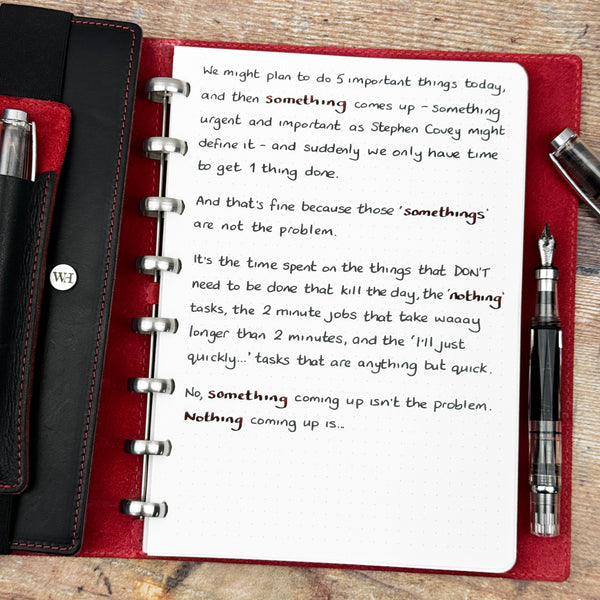 We might plan to do 5 important things today,
and then something comes up - something
urgent and important as Stephen Covey might
define it - and suddenly we only have time
to get 1 thing done.
And that's fine because those 'somethings'
are not the problem.
It's the time spent on the things that DON'T
need to be done that kill the day, the 'nothing'
tasks, the 2 minute jobs that take waaay
longer than 2 minutes, and the 'I'll just
quickly...' tasks that are anything but quick.
No, something coming up isn't the problem.
Nothing coming up is...
WH